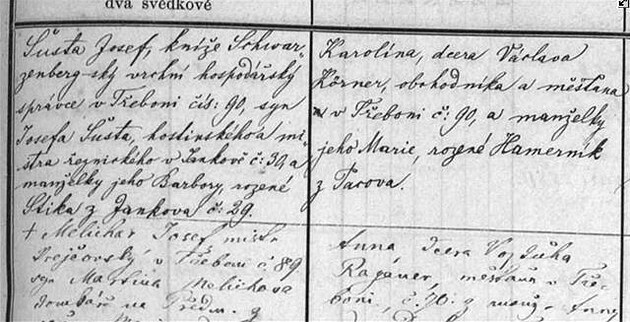 dva svědkové
Šusta Josef, kníže Schwar-
zenberg-ský vrchní hospodářský
správce v Třeboni čís: 90, syn
Josefa Šusta, hostinského a mi-
stra řeznického v Jankově č: 30, a
manželky jeho Barbory, rozené
Stika z Jankova č: 29.
Karolína, dcera Václava
Körner, obchodníka a měšťana
v Třeboni č: 90, a manželky
jeho Marie, rozené Hamerník
z Pacova.
+ Melichar Josef mistr
krejčovský v Třeboni č 89
syn Martina Melichara
na
Anna dcera Vojtěcha
měšťan v Tře-
boni, č. 70: Anny